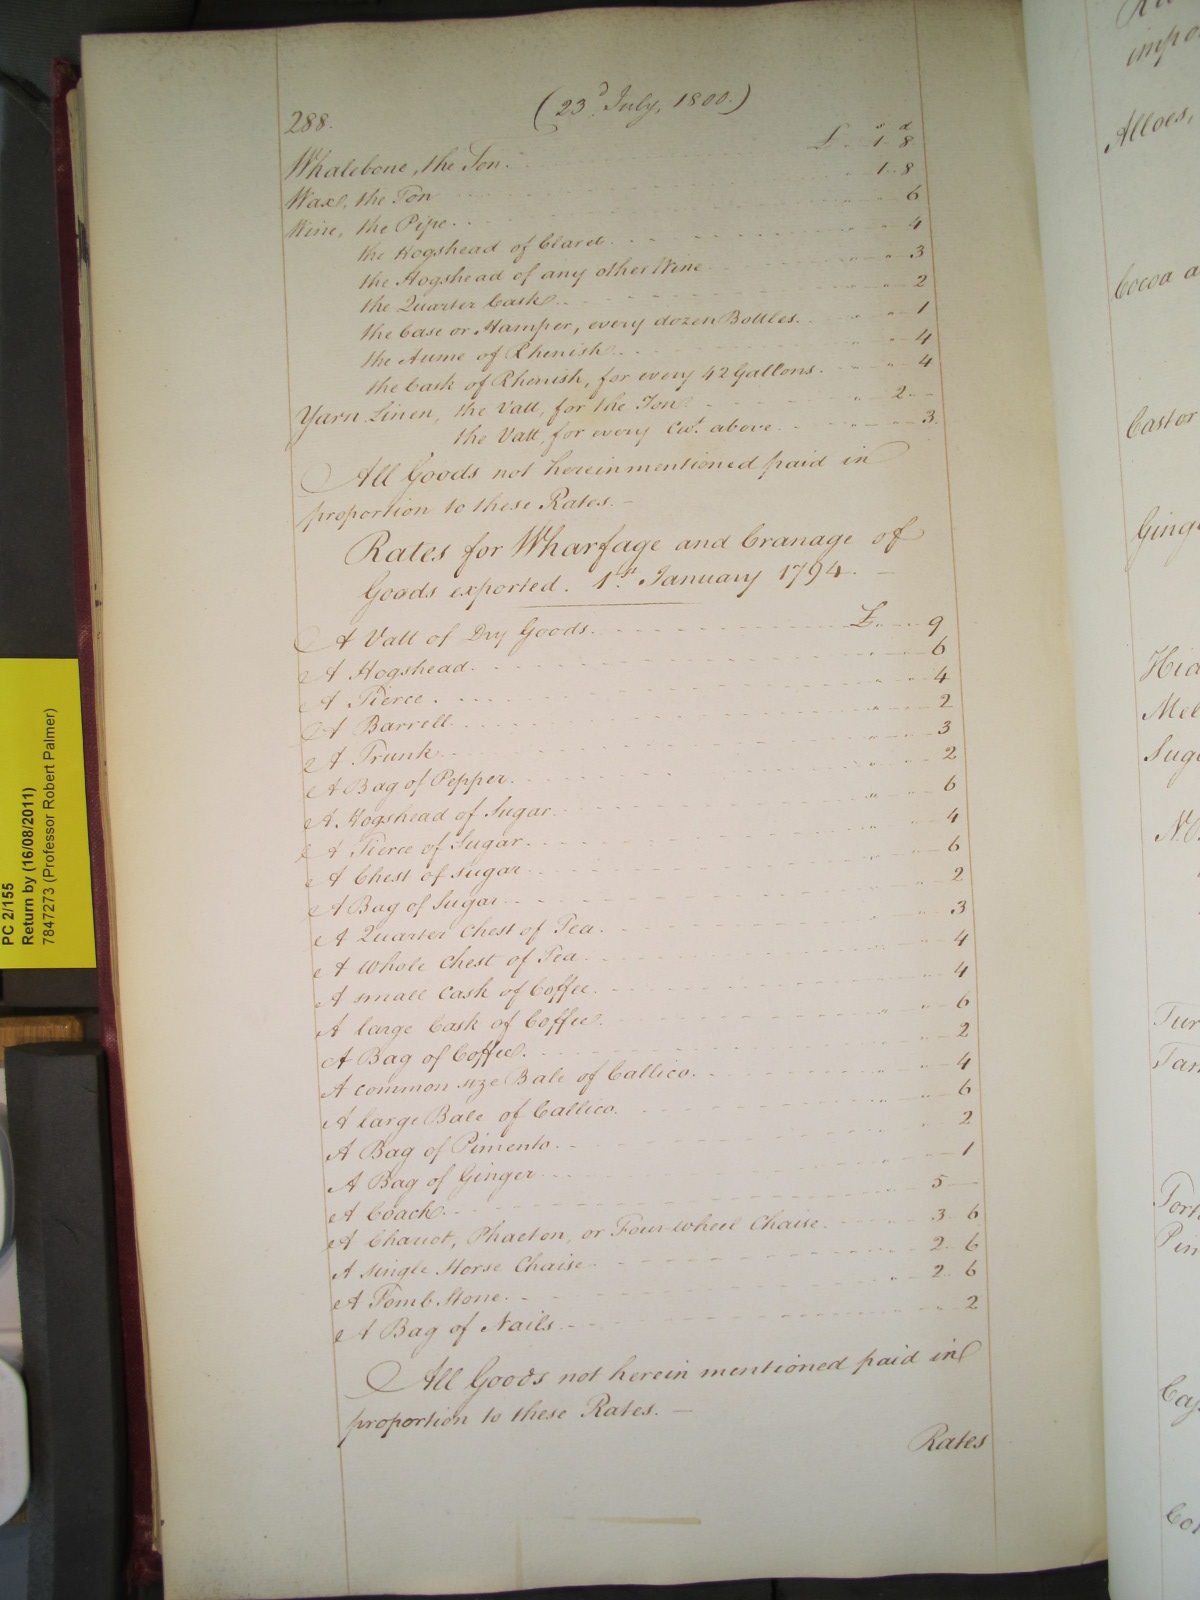 288.
(23d July, 1800.)
s d
Whalebone, the Ton. £ 1 8
Wax, the Ton 1 8
Wine, the Pipe 6
the Hogshead of Claret 4
the Hogshead of any other Wine 3
the Quarter Cask 2
the Case or Hamper, every dozen Bottles 1
the Aume of Rhenish 4
the Cask of Rhenish, for every 42 Gallons 4
Yarn Linen, the Vatt, for the Ton 2 -
the Vatt, for every Cwt. above 3
All Goods not herein mentioned paid in
proportion to these Rates. -
Rates for Wharfage and Cranage of
Goods exported. 1st January 1794. -
A Vatt of Dry Goods £ 9
A Hogshead 6
A Tierce 4
A Barrell 2
A Trunk 3
A Bag of Pepper 2
A Hogshead of Sugar 6
A Tierce of Sugar 4
A Chest of Sugar 6
A Bag of Sugar 2
A Quarter Chest of Tea 3
A Whole Chest of Tea 4
A small Cask of Coffee 4
A large Cask of Coffee 6
A Bag of Coffee 2
A common size Bale of Callico 4
A large Bale of Callico 6
A Bag of Pimento 2
A Bag of Ginger 1
A Coach 5 -
A Chariot, Phaeton, or Four-wheel Chaise 3 6
A Single Horse Chaise 2 6
A Tomb Stone 2 6
A Bag of Nails 2
All Goods not herein mentioned paid in
proportion to these Rates. -
Rates
PC 2/155
Return by (16/08/2011)
7847273 (Professor Robert Palmer)
impo
Alloes,
Cocoa a
Castor
Ging
Hid
Mel
Suga
Tur
Tam
Tort
Pim